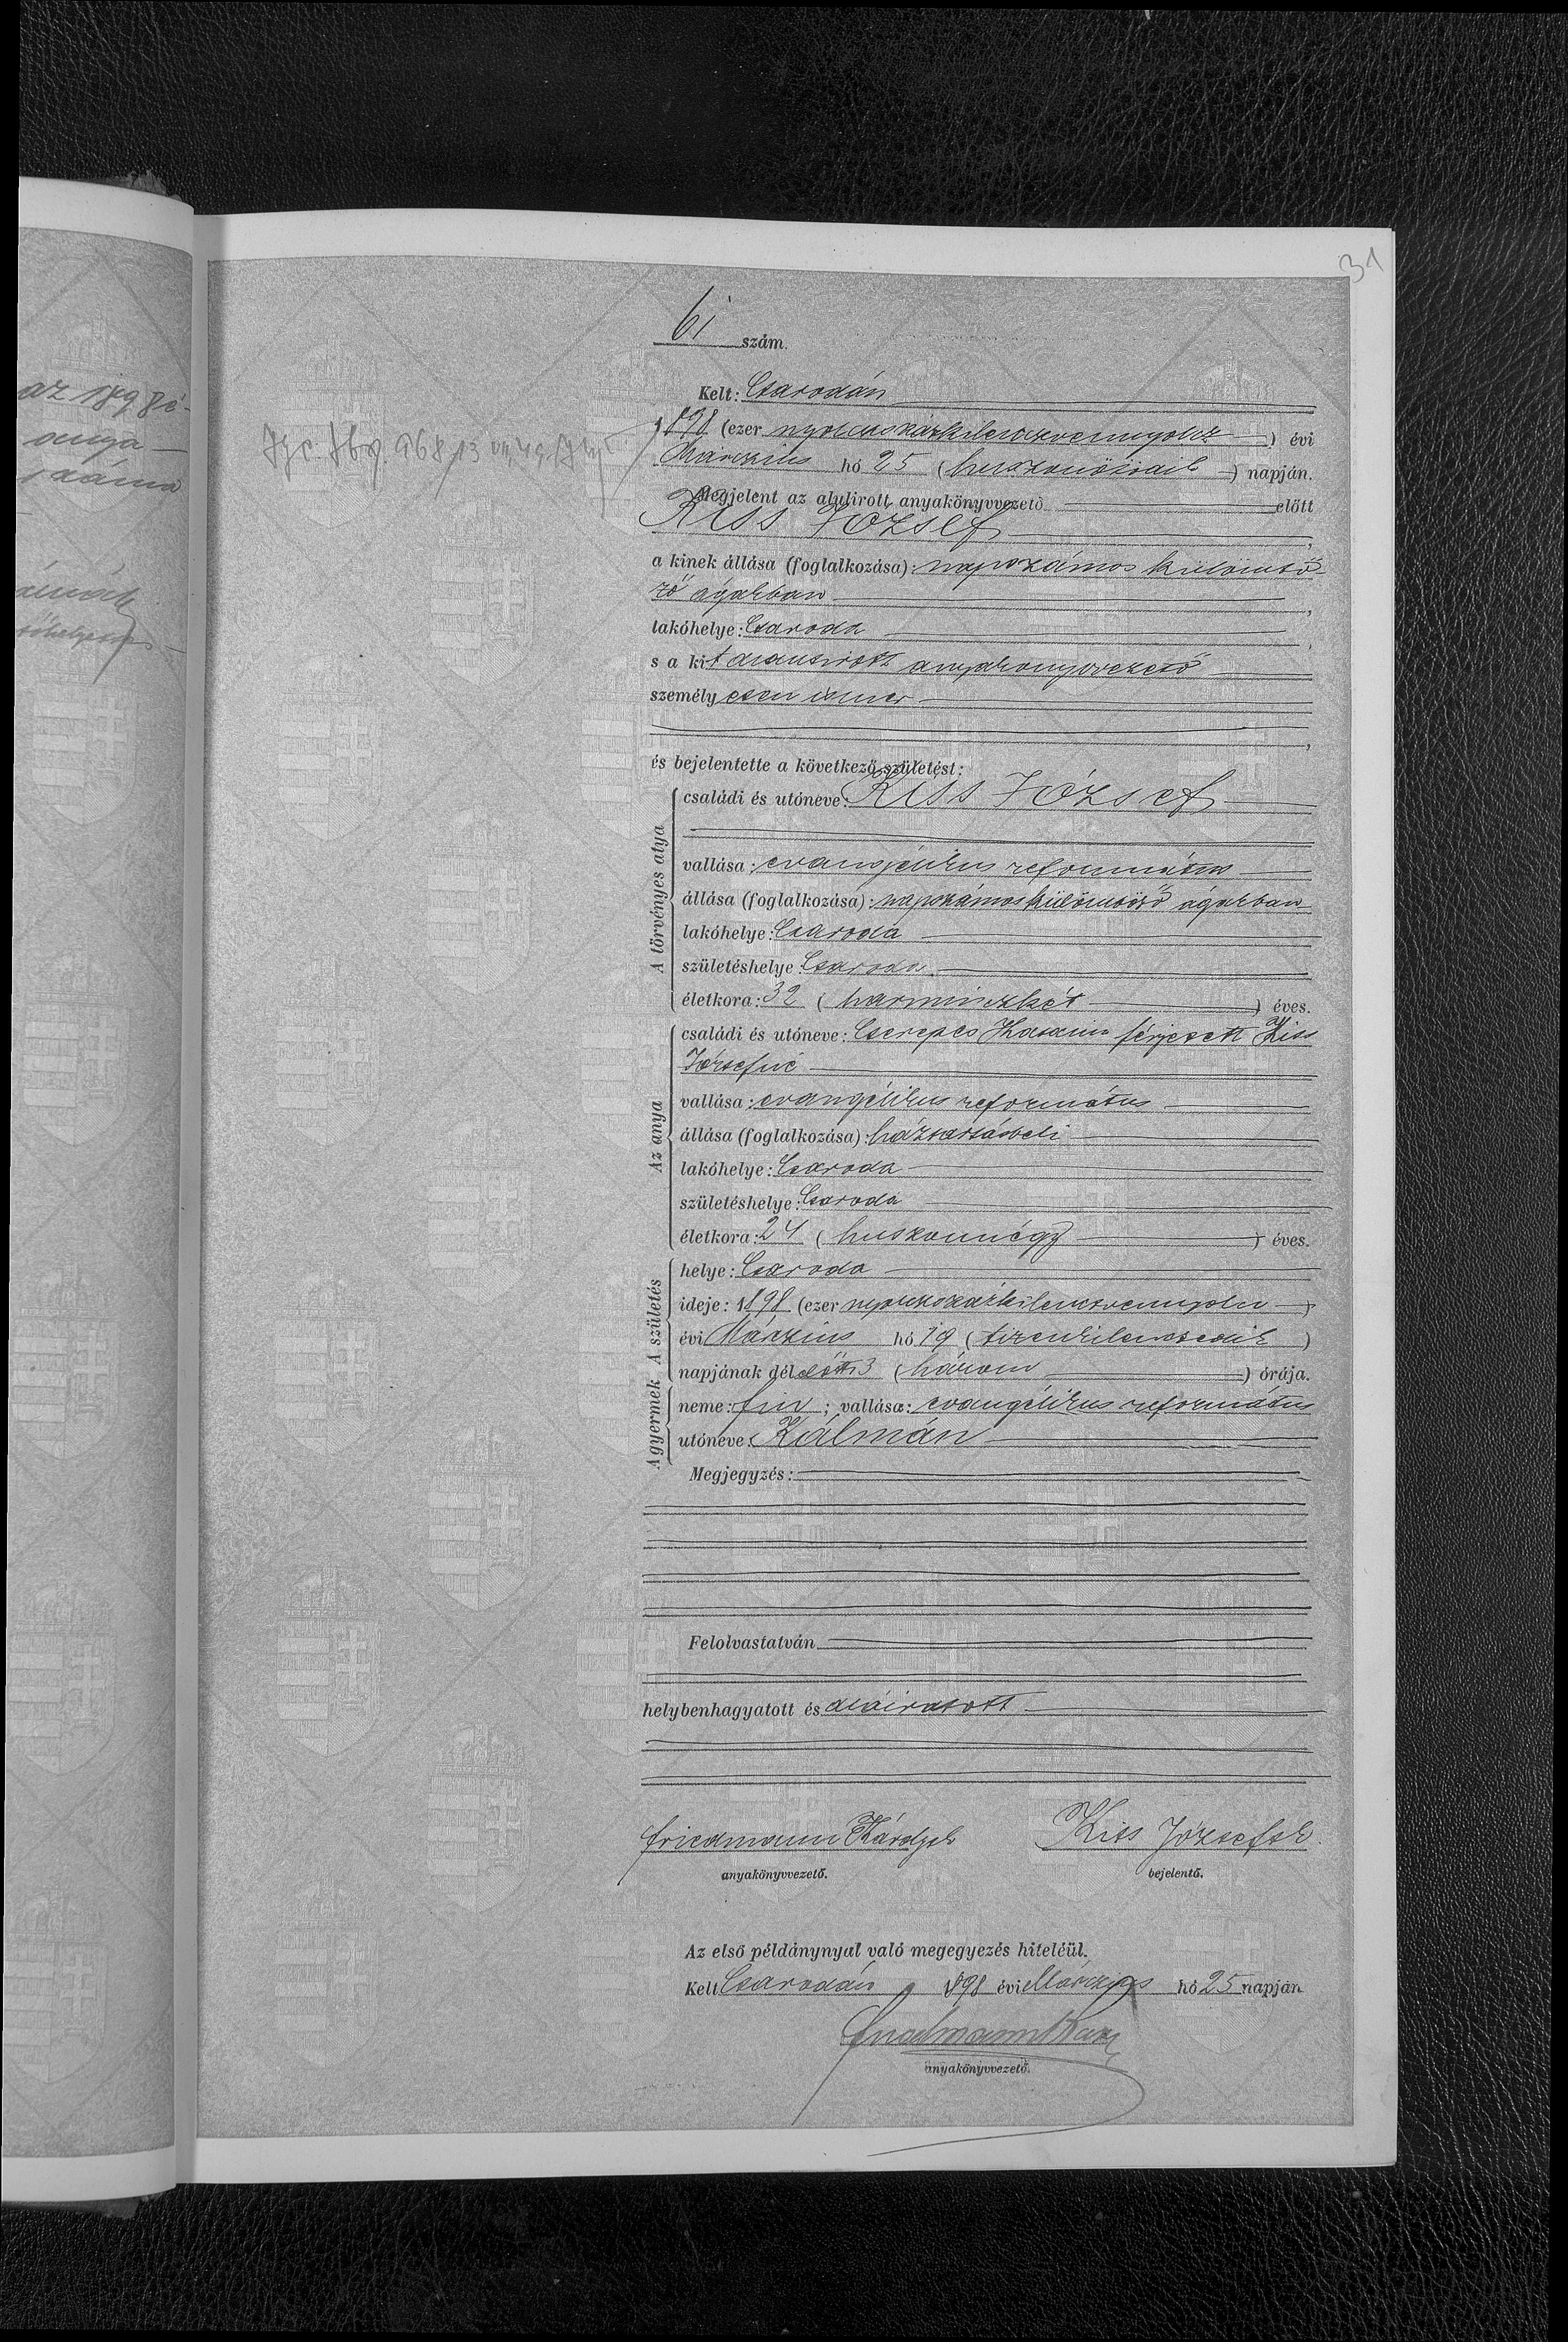 31
61 szám.
Kelt: Csarodán
1898 (ezer nyolczszázkilenczvennyolcz) évi
Márczius hó 25 (huszonötödik) napján.
Megjelent az alulirott anyakönyvvezető előtt
Kiss József,
a kinek állása (foglalkozása): napszámos különbö-
ző ágakban,
lakóhelye: Csaroda,
s a kit alantirott anyakönyvvezető
személyesen ismer
,
és bejelentette a következő születést:
A törvényes atya
családi és utóneve: Kiss József
vallása: evangélikus református
állása (foglalkozása): napszámos különböző ágakban
lakóhelye: Csaroda
születéshelye: Csaroda
életkora: 32 (harminczkét) éves.
Az anya
családi és utóneve: Cserepes Katalin férjezett Kiss
Józsefné
vallása: evangélikus református
állása (foglalkozása): háztartásbeli
lakóhelye: Csaroda
születéshelye: Csaroda
életkora: 24 (huszonnégy) éves.
A születés
helye: Csaroda
ideje: 1898 (ezer nyolczszázkilenczvennyolcz)
évi Márczius hó 19 (tizenkilenczedik)
napjának délelőtt 3 (három) órája.
A gyermek
neme: fiu; vallása: evangélikus református
utóneve: Kálmán
Megjegyzés:
Felolvastatván
helybenhagyatott és aláiratott
Friedmann Károly sk Kiss József sk.
anyakönyvvezető. bejelentő.
Az első példánynyal való megegyezés hiteléül.
Kelt Csarodán, 1898 évi Márczius hó 25 napján
Friedmann Károly
anyakönyvvezető.